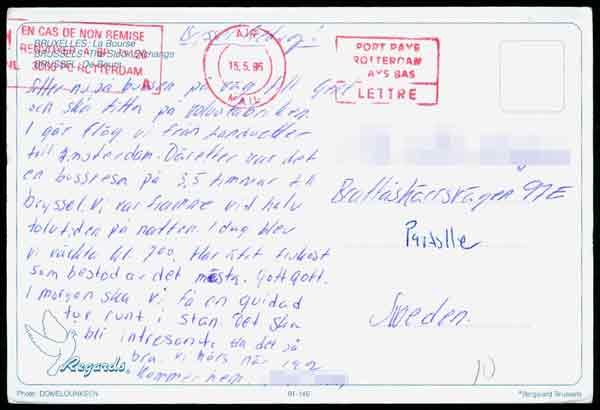 EN CAS DE NON REMISE
BRUXELLES: La Bourse
BRUSSEL: De Beurs
3000 PC ROTTERDAM
AIR
15.5.96
MAIL
PORT PAYE
ROTTERDAM
PAYS BAS
LETTRE
Sitter nu på bussen på väg till
och ska titta på
I går flög vi från Landvetter
till Amsterdam. Därefter var det
en bussresa på 3,5 timmar till
Bryssel. Vi var framme vid halv
tolvtiden på natten. I dag blev
vi väckta kl. 700. Har ätit frukost
som bestod av det mesta. Gott gott.
I morgon ska vi få en guidad
tur runt i stan. Det ska
bli intressant. Ha det så
bra vi hörs när jag
kommer hem.
Brattåskärrsvägen 97E
Partille
Sweden.
Regards
Photo: DOMELOUNKSEN
91-146
Regaard Brussels